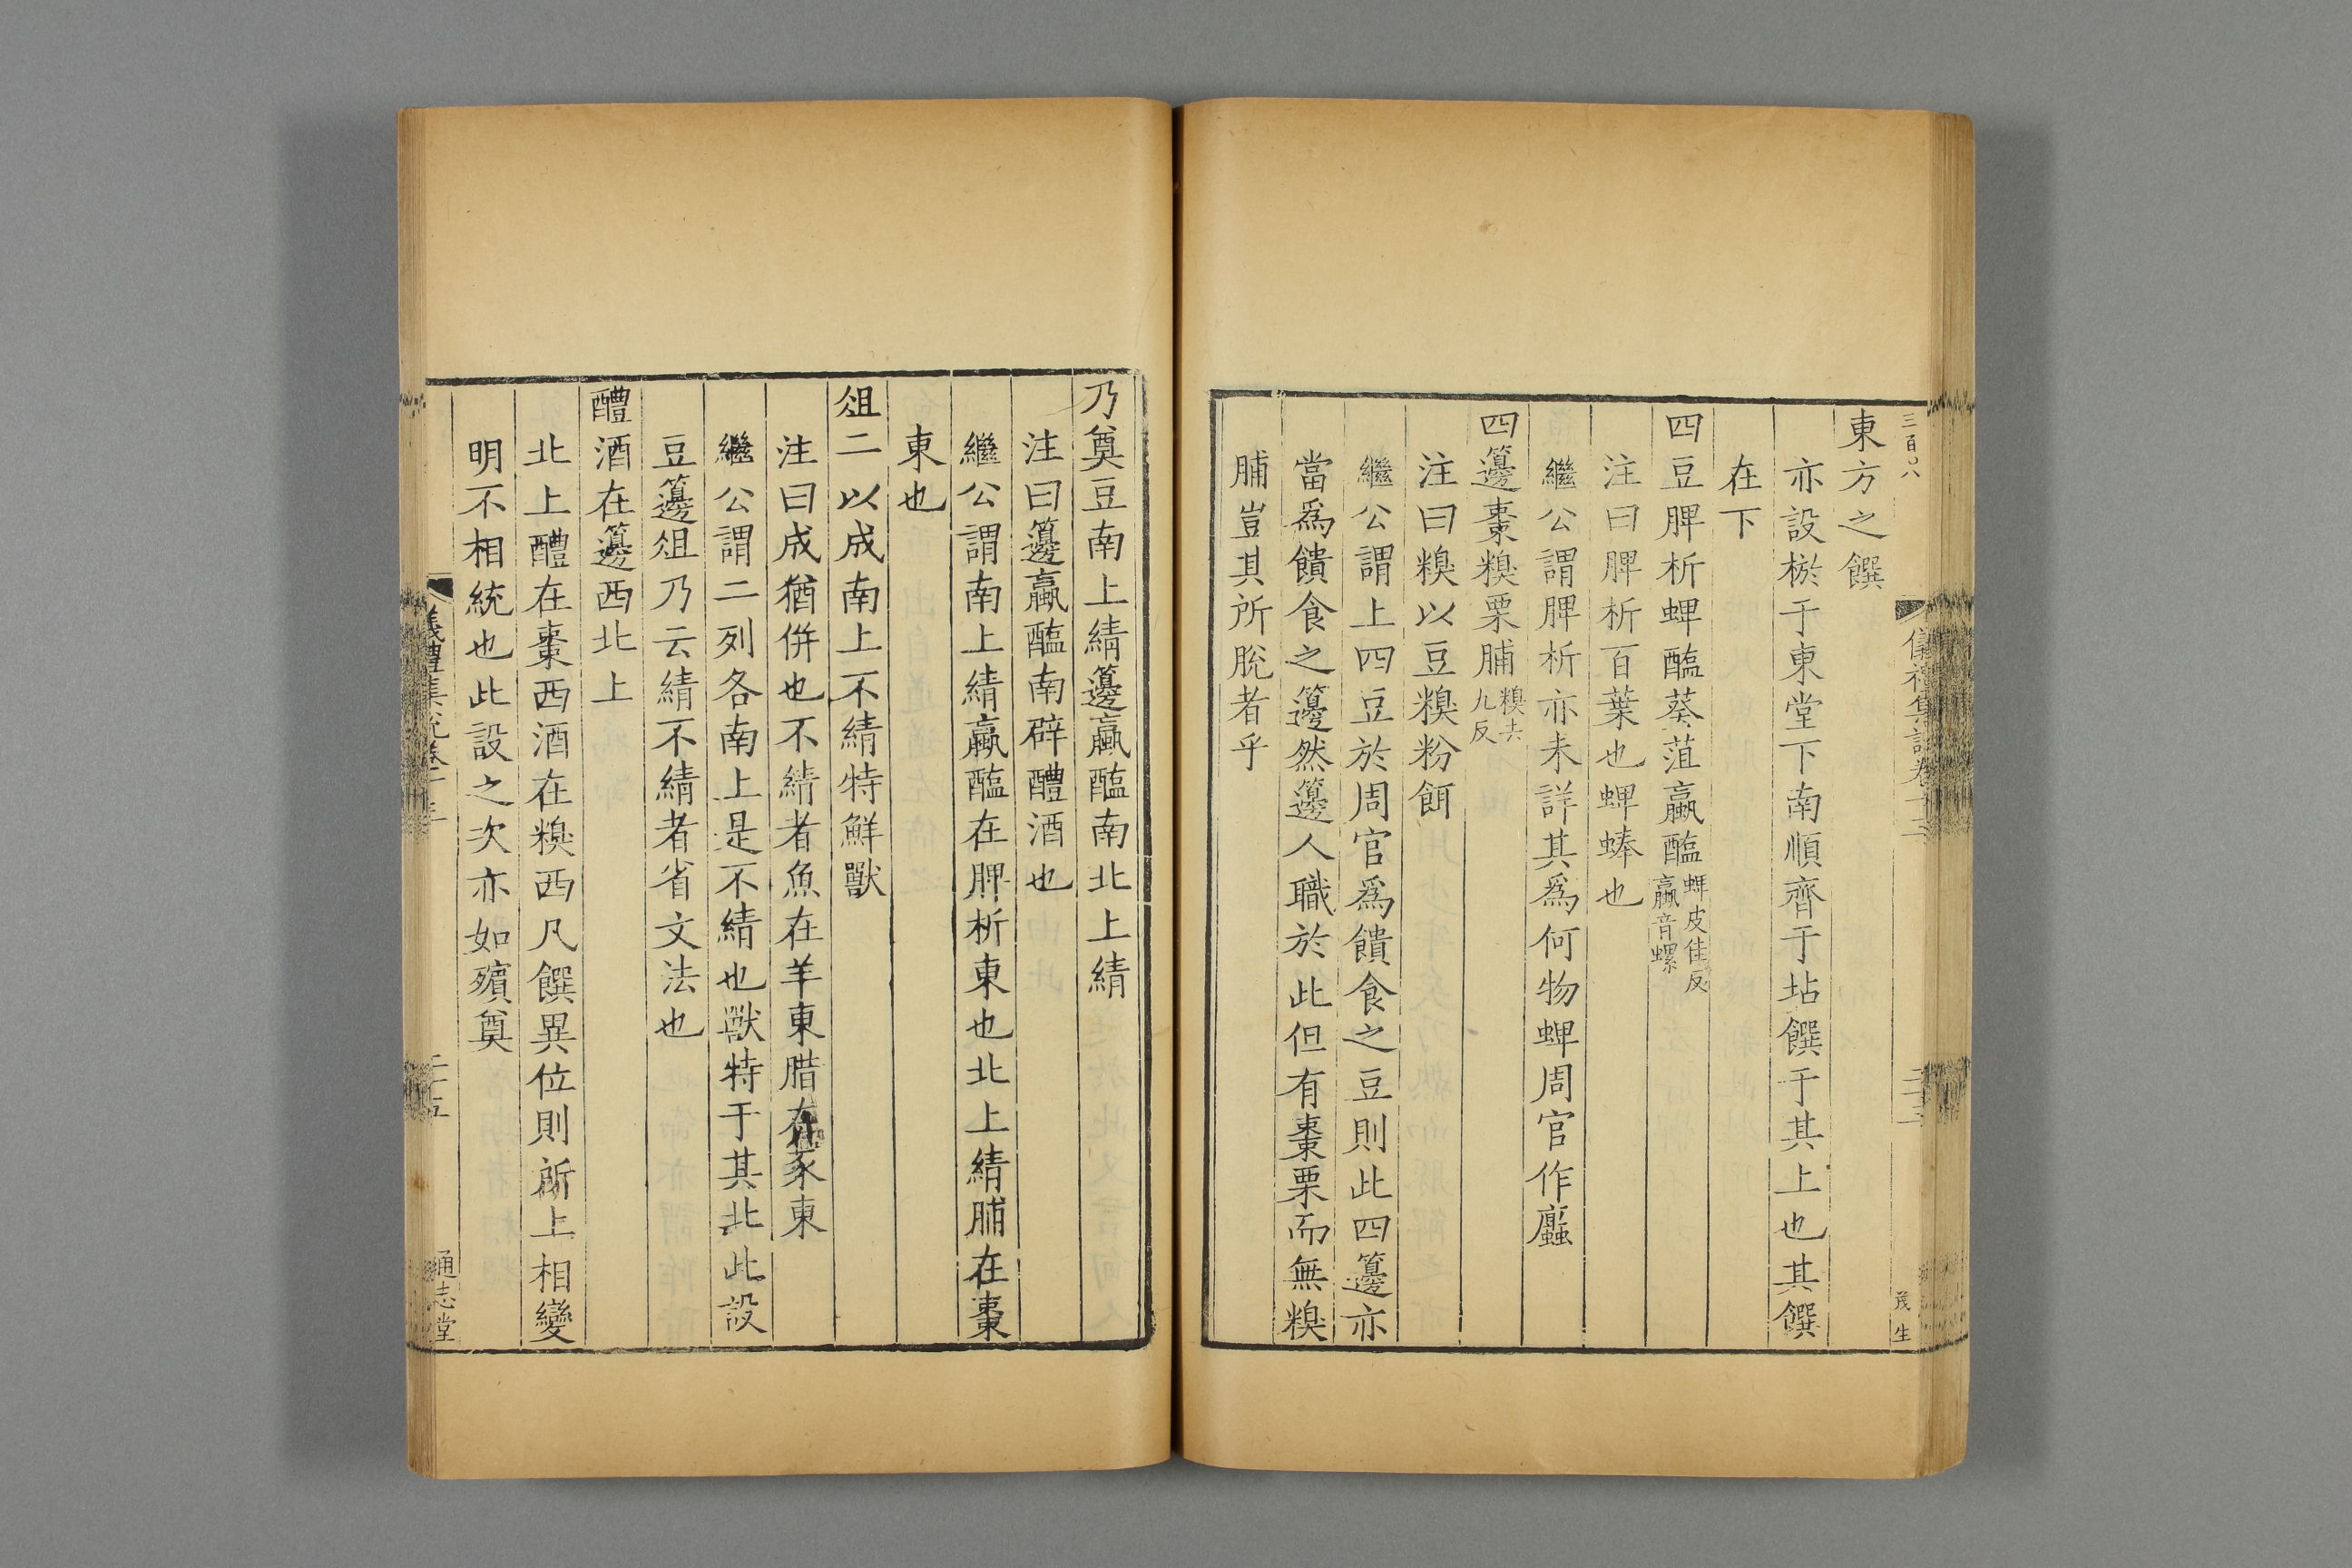 三百〇八
儀禮集說卷十三
茂生
東方之饌
亦設棜于東堂下南順齊于坫饌于其上也其饌
在下
四豆脾析蜱醢葵菹蠃醢蜱皮佳反蠃音螺
注曰脾析百葉也蜱蜯也
繼公謂脾析亦未詳其爲何物蜱周官作蠯
四籩棗糗栗脯糗去九反
注曰糗以豆糗粉餌
繼公謂上四豆於周官爲饋食之豆則此四籩亦
當爲饋食之籩然籩人職於此但有棗栗而無糗
脯豈其所脫者乎
乃奠豆南上綪籩蠃醢南北上綪
注曰籩蠃醢南辟醴酒也
繼公謂南上綪蠃醢在脾析東也北上綪脯在棗
東也
俎二以成南上不綪特鮮獸
注曰成猶併也不綪者魚在羊東腊在豕東
繼公謂二列各南上是不綪也獸特于其北此設
豆籩俎乃云綪不綪者省文法也
醴酒在籩西北上
北上醴在棗西酒在糗西凡饌異位則所上相變
明不相統也此設之次亦如殯奠
通志堂